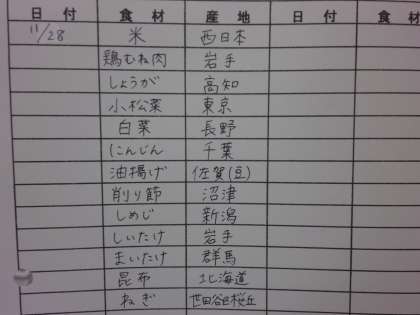 日付 食材 産地 日付 食材
11/28 米 西日本
鶏むね肉 岩手
しょうが 高知
小松菜 東京
白菜 長野
にんじん 千葉
油揚げ 佐賀(豆)
削り節 沼津
しめじ 新潟
しいたけ 岩手
まいたけ 群馬
昆布 北海道
ねぎ 世田谷区桜丘